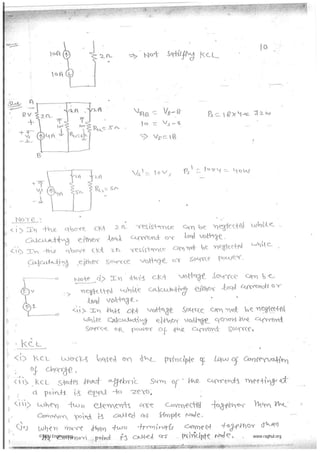 10
10A
2Ω
⇒ Not satisfying KCL
10A
A
2A
2A
8V
2Ω
V_AB = V_S - 8
P = 18 × 4 = 72w
10 = V_S - 8
4A
R_L = 5Ω
⇒ V_S = 18
B
2A
2A
V_S' = 10V,
P_S' = 10×4 = 40W
5Ω
R_L = 5Ω
NOTE :
<i> In the above CKt 2Ω resistance can be neglected while
calculating either load current or load voltage.
<ii> In the above ckt 2Ω resistance can not be neglected while
calculating either source voltage or source power.
Note i> In this CKt voltage source can be
neglected while calculating either load current or
load voltage.
<ii> In this ckt voltage source can not be neglected
while calculating either voltage across the current
source or power of the current source.
KCL
<i> KCL works based on the principle of law of conservation
of charge.
<ii> KCL states that algebric sum of the currents meeting at
a point is equal to zero.
<iii> when two elements are connected together then the
common point is called as simple node.
when more than two terminals connect together then
common point is called as principle node.
www.raghul.org